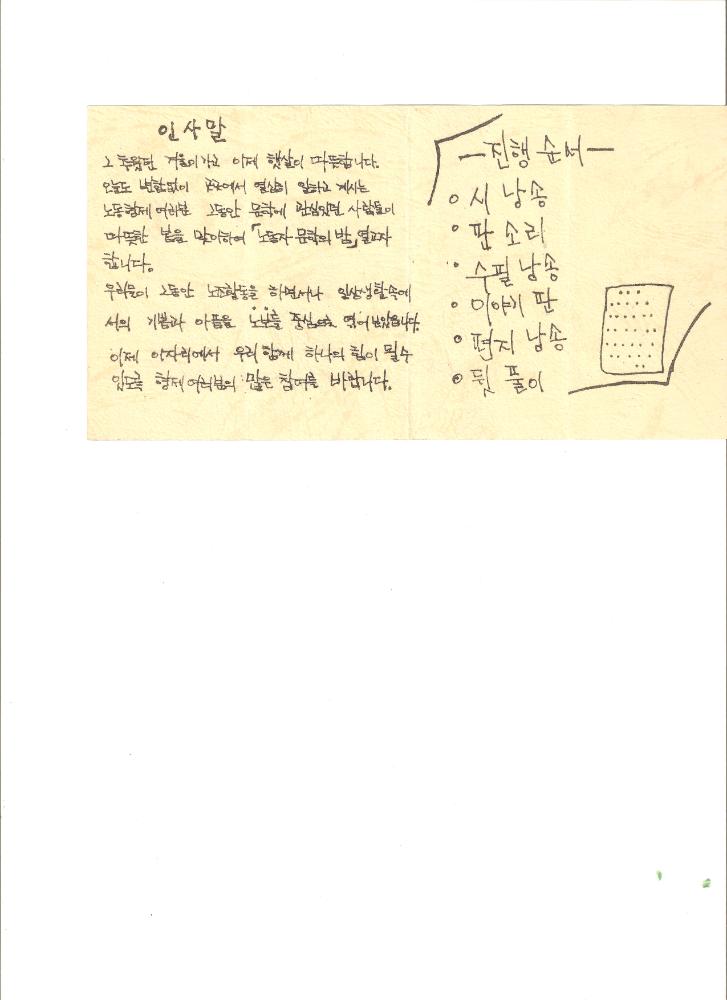 인사말
그 추웠던 겨울이가고 이제 햇살이 따뜻합니다.
오늘도 변함없이 곳곳에서 열심히 일하고 계시는
노동형제 여러분 그동안 문학에 관심있던 사람들이
따뜻한 봄을 맞이하여 「노동자 문학의 밤」 열고자
합니다.
우리들이 그동안 노조활동을 하면서나 일상생활속에
서의 기쁨과 아픔을 노보를 중심으로 엮어보았습니다.
이제 이자리에서 우리 함께 하나의 힘이 될수
있도록 형제 여러분의 많은 참여를 바랍니다.
—진행 순서—
시 낭송
판 소리
수필 낭송
이야기 판
편지 낭송
뒷 풀이